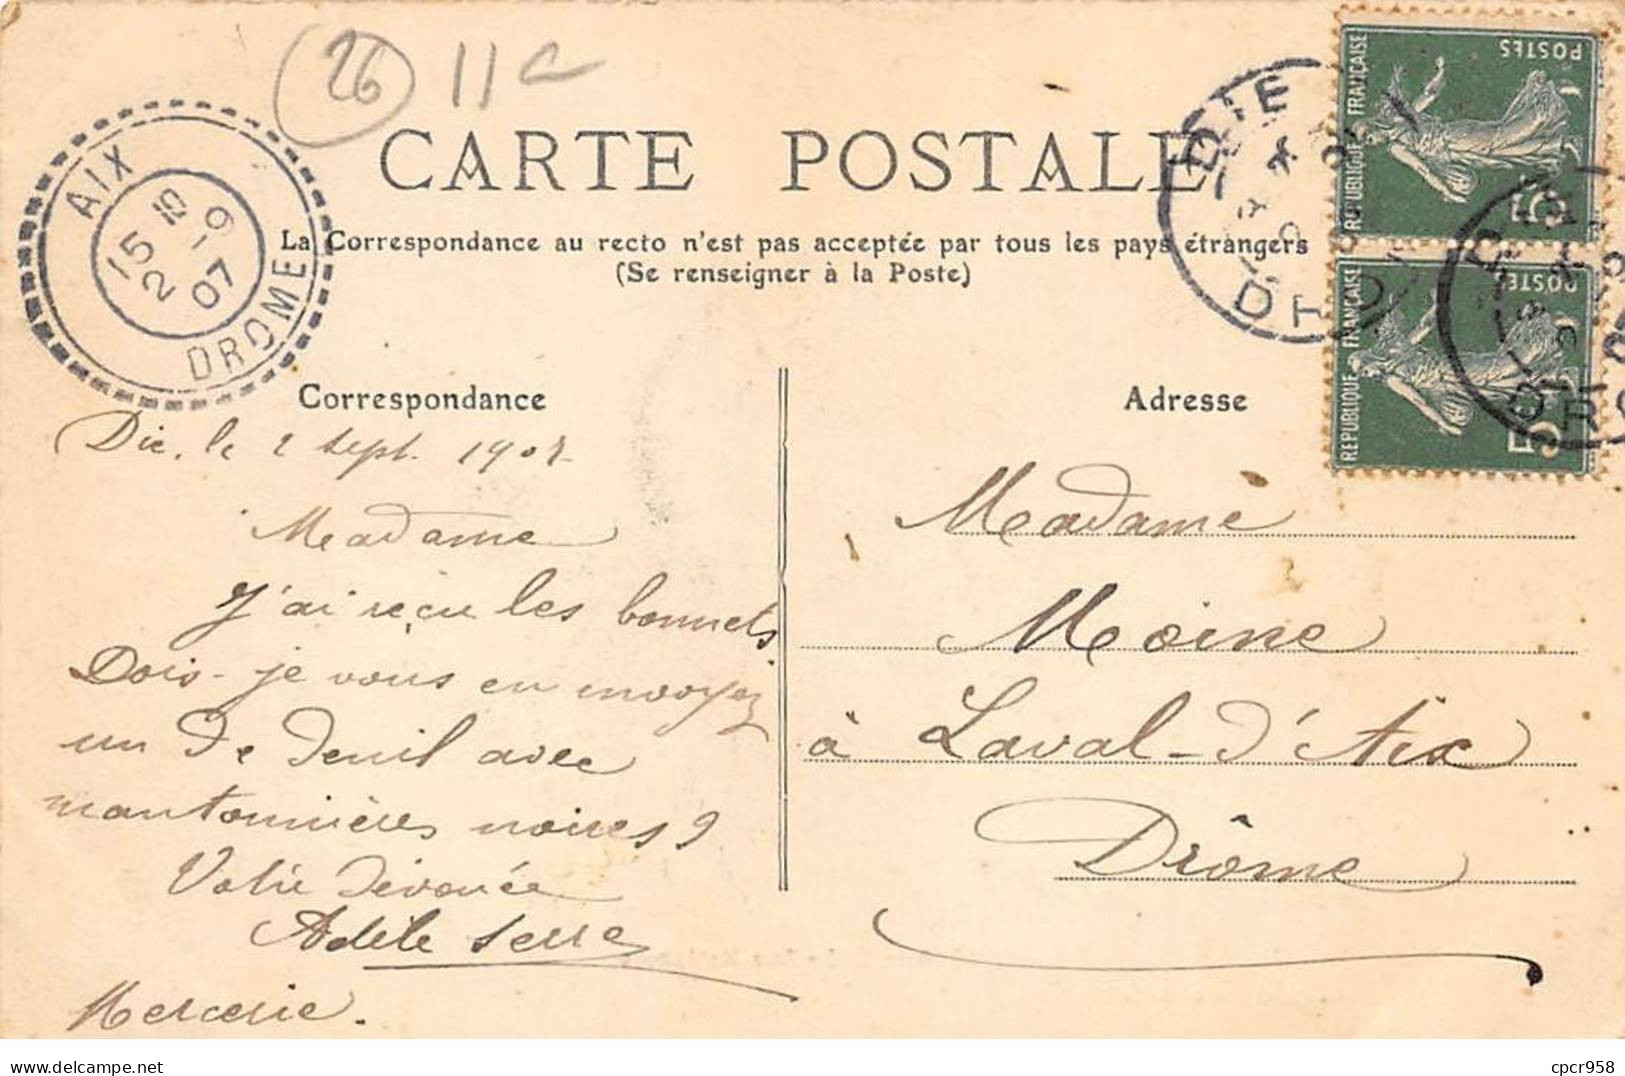 26 11
CARTE POSTALE
La Correspondance au recto n'est pas acceptée par tous les pays étrangers
(Se renseigner à la Poste)
AIX
15
2 9
07
DROME
DIE
DROME
RÉPUBLIQUE FRANÇAISE
POSTES
5
RÉPUBLIQUE FRANÇAISE
POSTES
5
Correspondance
Die, le 2 Sept. 1907
Madame
J'ai reçu les bonnets
Dois-je vous en envoyez
un De Deuil avec
mantonnières noires?
Votre Dévouée
Adèle Serre
Mercerie.
Adresse
Madame
Moine
à Laval-d'Aix
Drôme
cpcr958